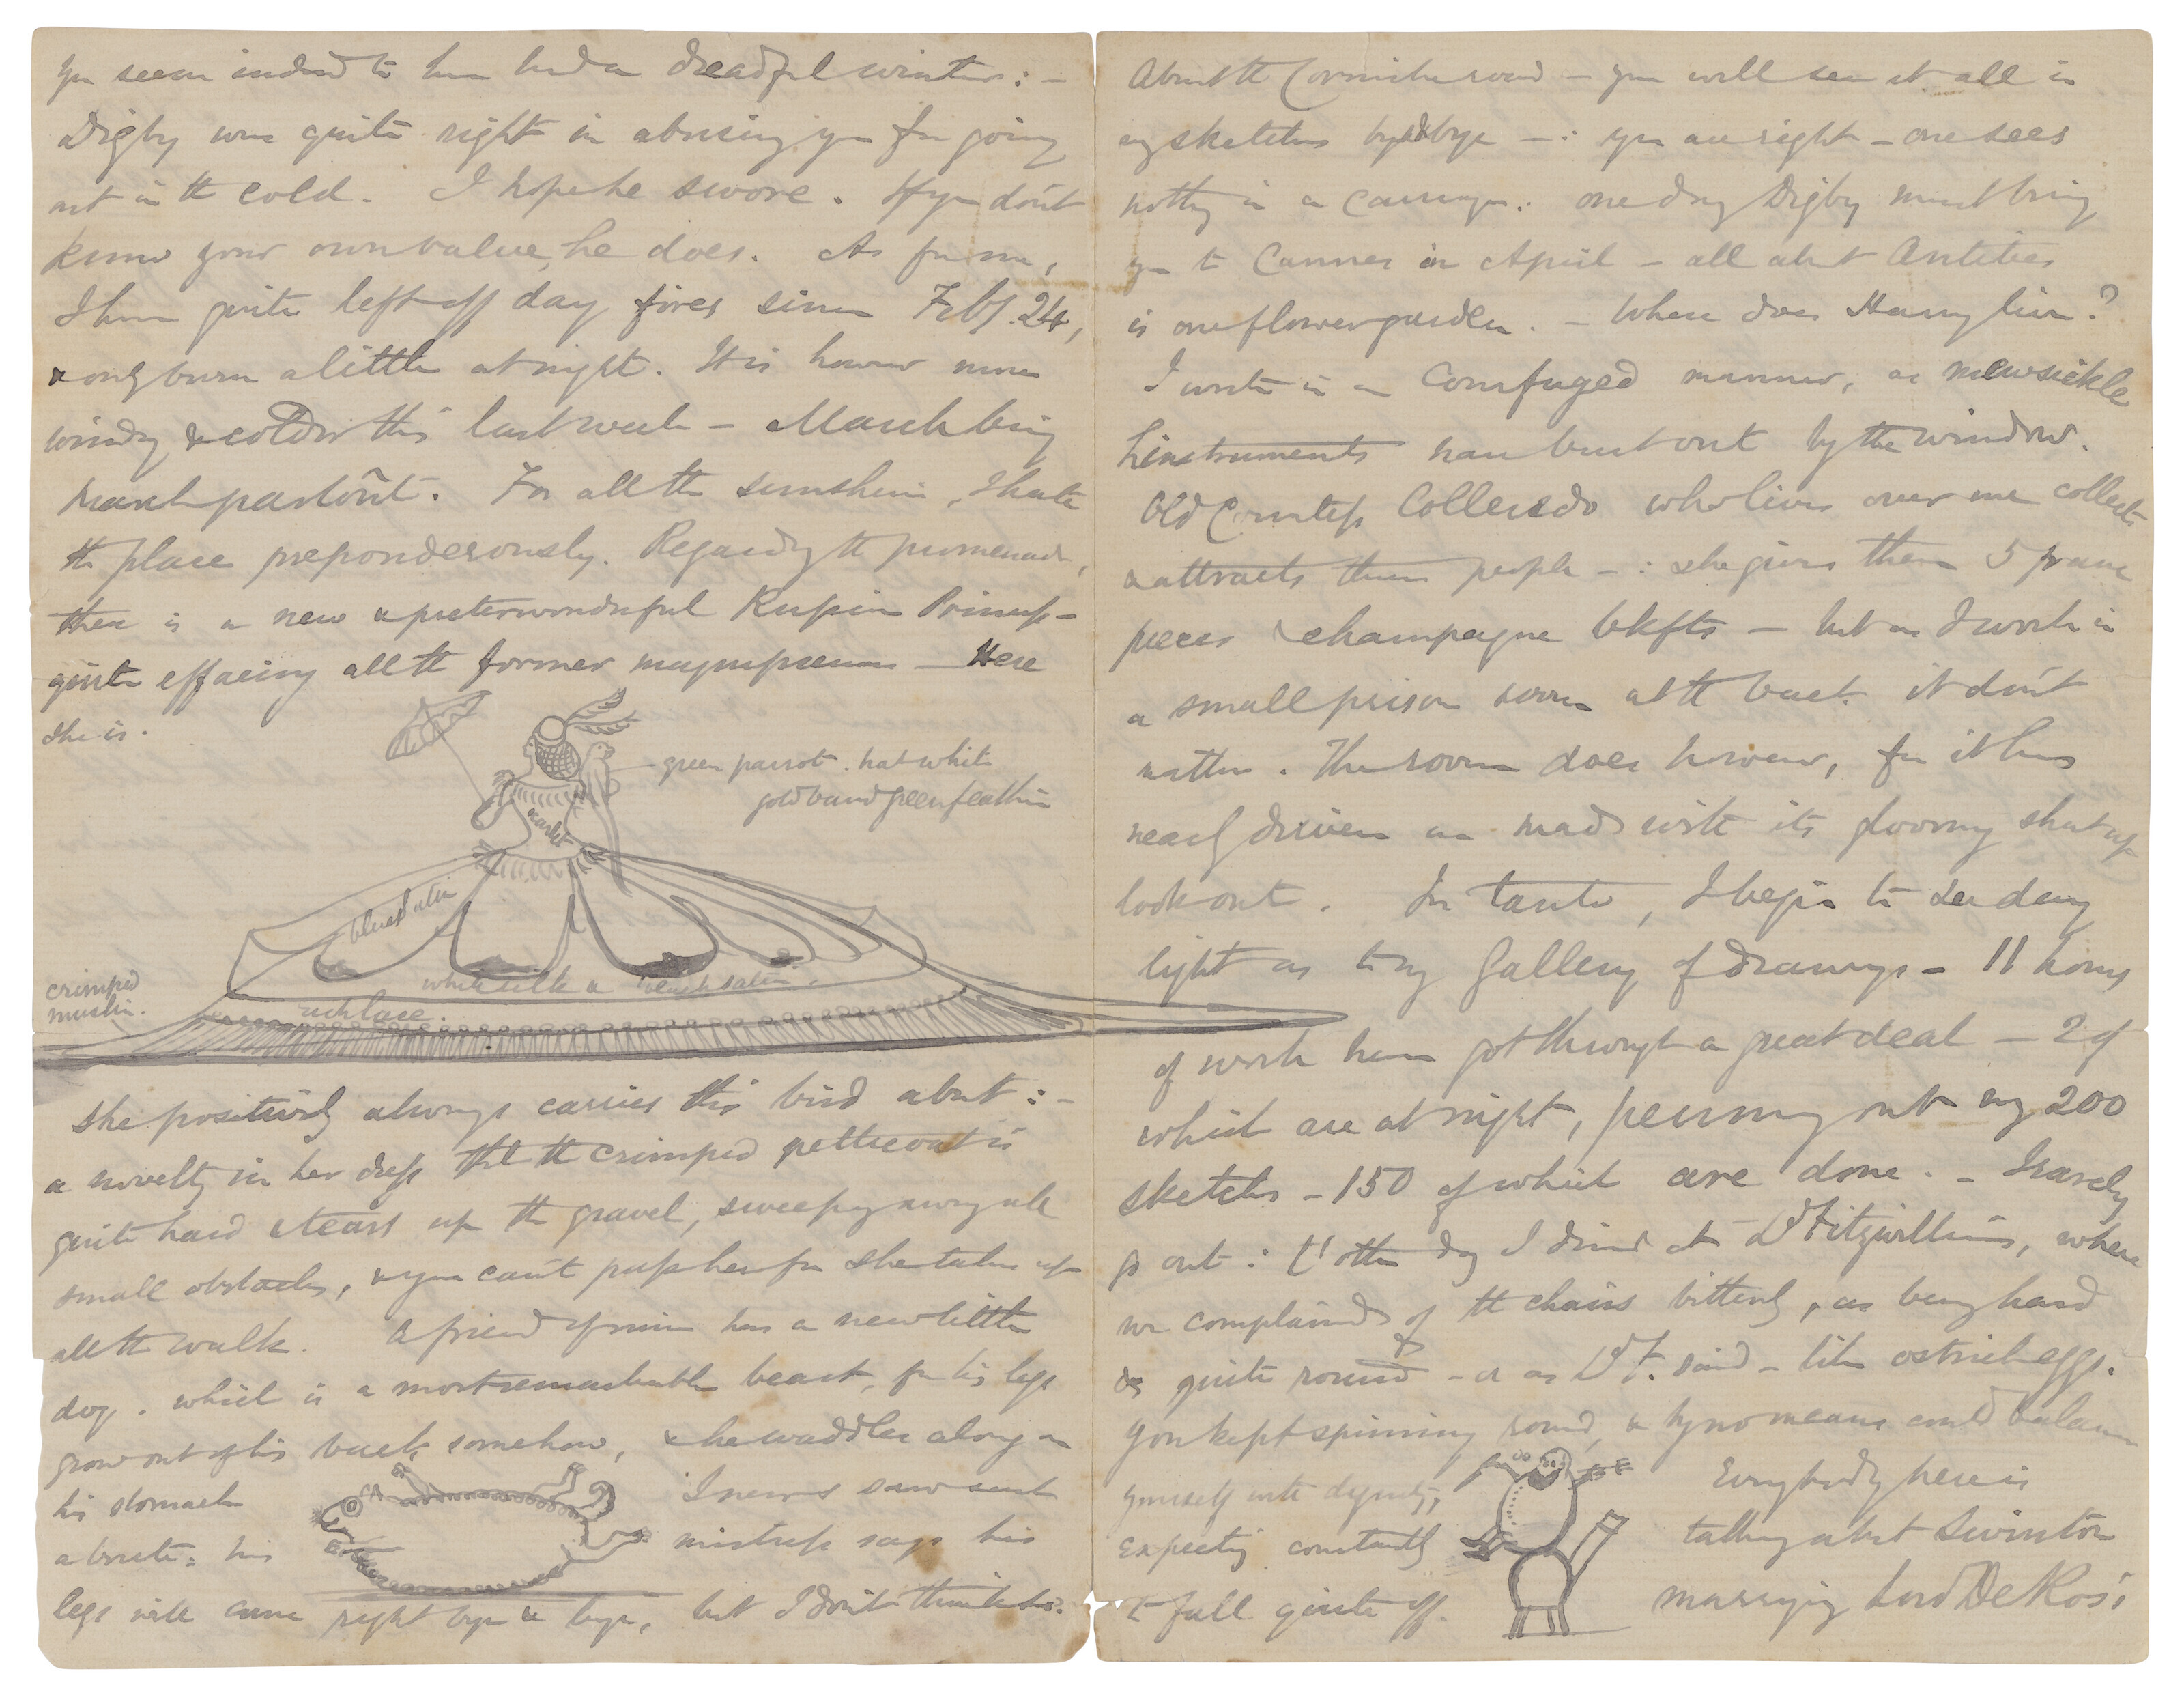 you seem indeed to have had a dreadful winter: —
Digby was quite right in abusing you for going
out in th cold. I hope he swore. If you don't
know your own value, he does. As for me,
I have quite left off day fires since Feby. 24,
& only burn a little at night. It is however more
windy & colder this last week — March being
March partôut. For all the sunshine, I hate
th place preponderously. Regarding th promenade,
there is a new & preterwonderful Russian Princess —
quite effacing all th former magnificences — Here
she is.
green parrot. hat white
gold band green feathers
scarlet
blue satin
crimped
muslin.
white silk & black satin.
necklace.
she positively always carries this bird about: —
a novelty in her dress tht th crimped petticoat is
quite hard & tears up th gravel, sweeping away all
small obstacles, & you can't pass her for she takes up
all th walk. A friend of mine has a new little
dog. which is a most remarkable beast, for his legs
grow out of his back somehow, & he waddles along on
his stomach I never saw such
a brute: his mistress says his
legs will come right bye & bye, but I don't think so.
About th Corniche road — you will see it all in
my sketches bye & bye —: you are right — one sees
nothing in a carriage: one day Digby must bring
you to Cannes in April — all about Antibes
is one flower garden. — Where does Harry live?
I write in a comfuged manner, as mewsickle
hinstruments have bust out by the window.
Old Countess Colleredo who lives over me collects
& attracts these people —: she gives them 5 franc
pieces & champagne bkfts — but as I work in
a small prison room at th back it don't
matter. The room does however, for it has
nearly driven me mad with its gloomy shut up
look out. In tanto, I begin to see day
light as to my Gallery of drawings — 11 hours
of work have got through a great deal — 2 of
which are at night, penning out my 200
sketches — 150 of which are done. — I rarely
go out: t'other day I dined at Ly Fitzwilliams, where
we complained of th chairs bitterly, as being hard
& quite round — or as Ly F. said — like ostrich eggs.
You kept spinning round, & by no means could balance
yourself with dignity, Everybody here is
expecting constantly talking about Swinton
to fall quite off. marrying Lord De Ros's